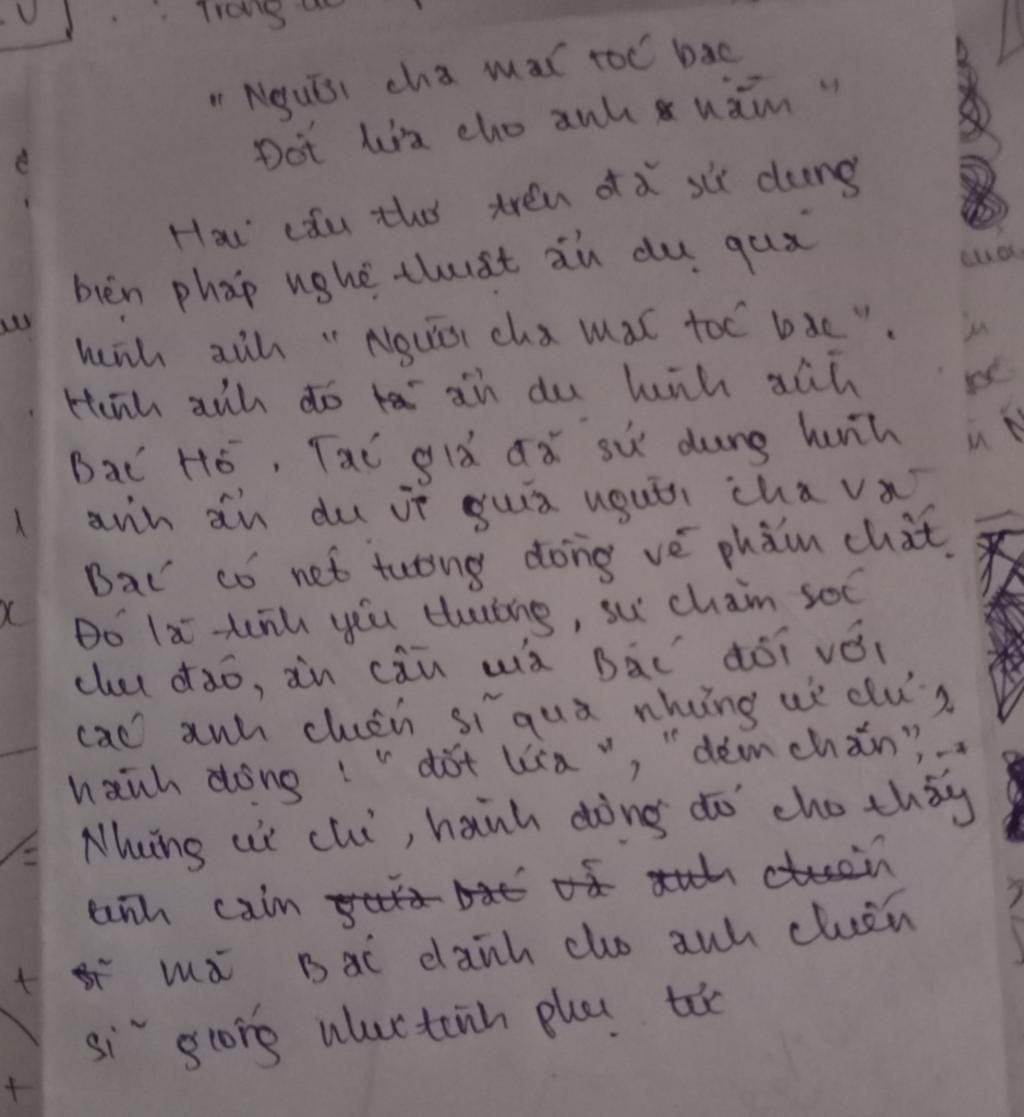 Trong
"Người cha mái tóc bạc
Đốt lửa cho anh nằm"
Hai câu thơ trên đã sử dụng
biện pháp nghệ thuật ẩn dụ qua
hình ảnh "Người cha mái tóc bạc".
Hình ảnh đó là ẩn dụ hình ảnh
Bác Hồ. Tác giả đã sử dụng hình
ảnh ẩn dụ vì giữa người cha và
Bác có nét tương đồng về phẩm chất.
Đó là tình yêu thương, sự chăm sóc
chu đáo, ân cần của Bác đối với
các anh chiến sĩ qua những cử chỉ,
hành động: "đốt lửa", "dém chăn",...
Những cử chỉ, hành động đó cho thấy
tình cảm giữa bác và anh chiến
sĩ mà Bác dành cho anh chiến
sĩ giống như tình phụ tử